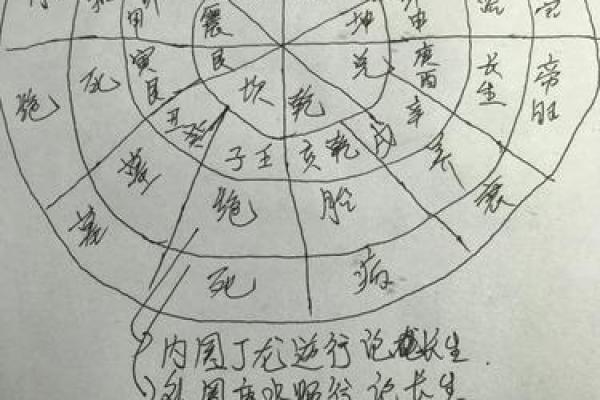 甲 震 坤 申
绝 死 寅艮 艮 兑 庚酉 长生 帝旺
坎 乾 辛
丑癸 子壬 亥乾 戌 养
墓 墓 绝 胎 衰
死 病
内圈丁龙逆行论长生.
外圈水顺行论长生